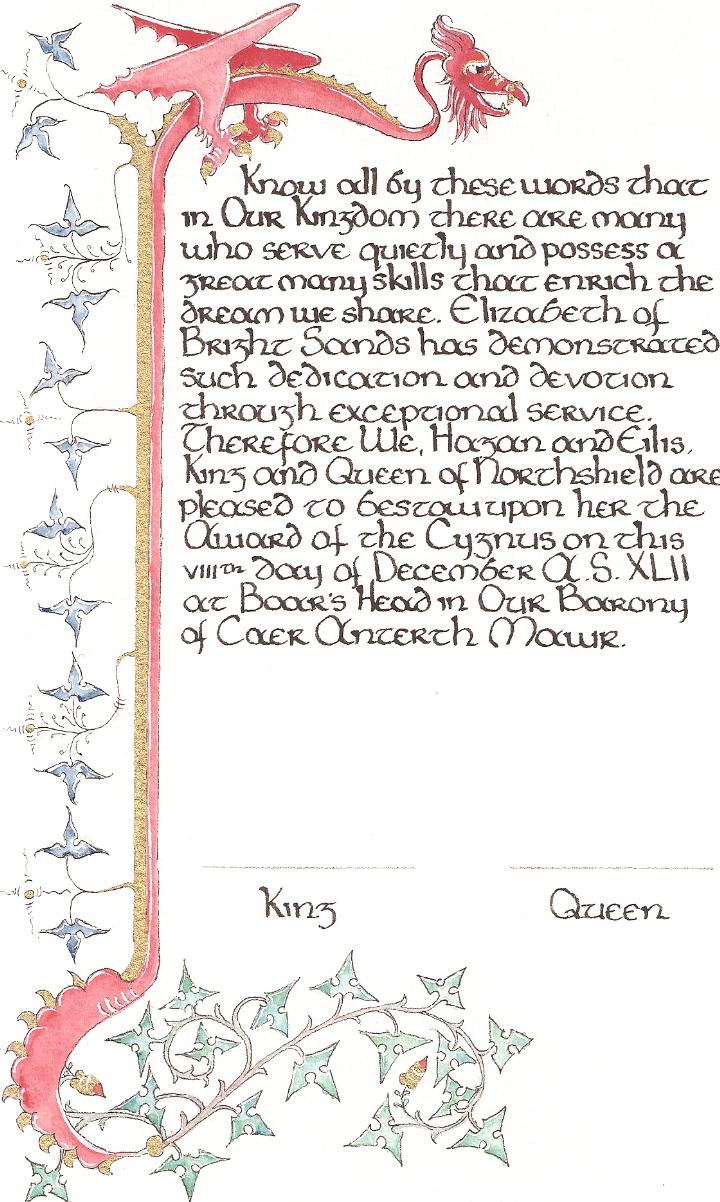 Know all by these words that
in Our Kingdom there are many
who serve quietly and possess a
great many skills that enrich the
dream we share. Elizabeth of
Bright Sands has demonstrated
such dedication and devotion
through exceptional service.
Therefore We, Hagan and Eilis,
King and Queen of Northshield are
pleased to bestow upon her the
Award of the Cygnus on this
viiith day of December A.S. XLII
at Boar's Head in Our Barony
of Caer Anterth Mawr.
King Queen